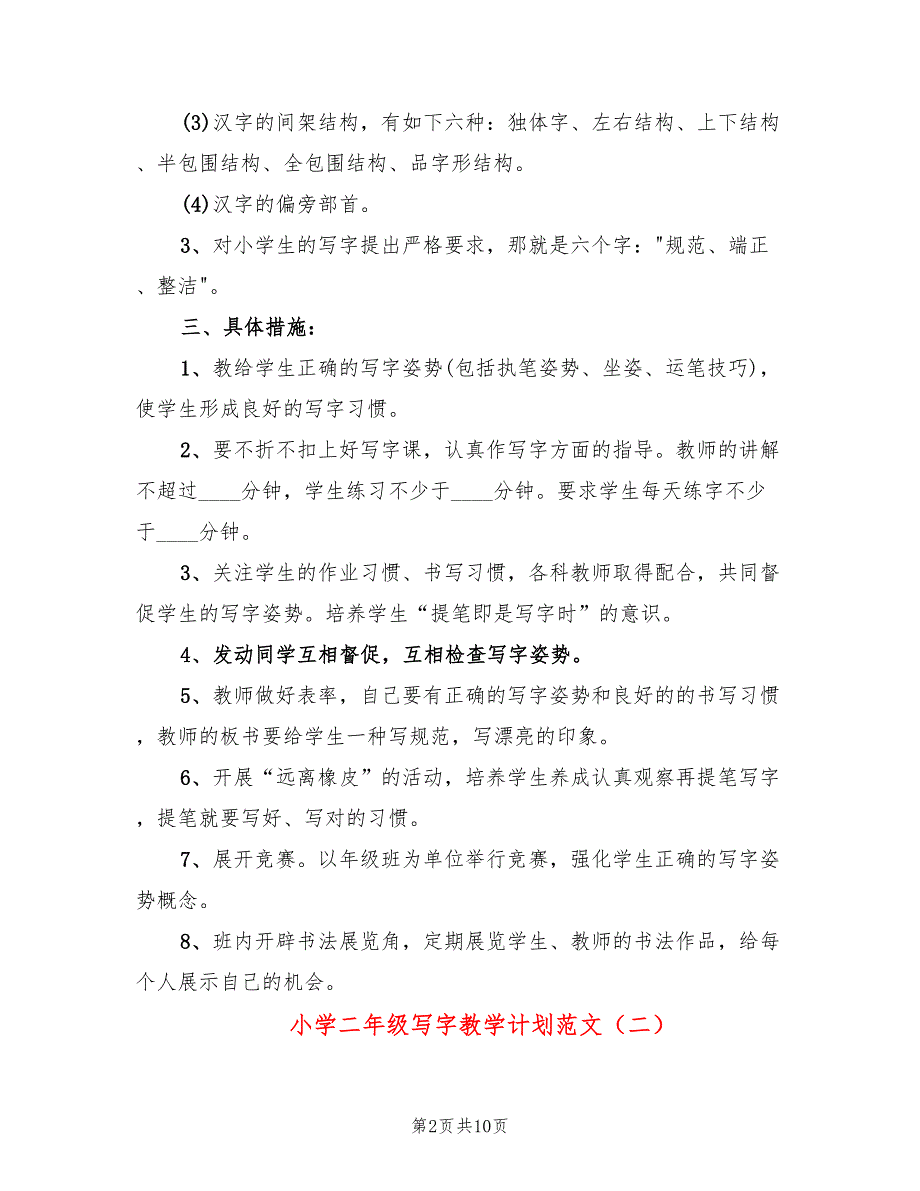 (3)汉字的间架结构，有如下六种：独体字、左右结构、上下结构
、半包围结构、全包围结构、品字形结构。
(4)汉字的偏旁部首。
3、对小学生的写字提出严格要求，那就是六个字："规范、端正
、整洁"。
三、具体措施：
1、教给学生正确的写字姿势(包括执笔姿势、坐姿、运笔技巧)，
使学生形成良好的写字习惯。
2、要不折不扣上好写字课，认真作写字方面的指导。教师的讲解
不超过____分钟，学生练习不少于____分钟。要求学生每天练字不少
于____分钟。
3、关注学生的作业习惯、书写习惯，各科教师取得配合，共同督
促学生的写字姿势。培养学生“提笔即是写字时”的意识。
4、发动同学互相督促，互相检查写字姿势。
5、教师做好表率，自己要有正确的写字姿势和良好的的书写习惯
，教师的板书要给学生一种写规范，写漂亮的印象。
6、开展“远离橡皮”的活动，培养学生养成认真观察再提笔写字
，提笔就要写好、写对的习惯。
7、展开竞赛。以年级班为单位举行竞赛，强化学生正确的写字姿
势概念。
8、班内开辟书法展览角，定期展览学生、教师的书法作品，给每
个人展示自己的机会。
小学二年级写字教学计划范文（二）
第2页共10页